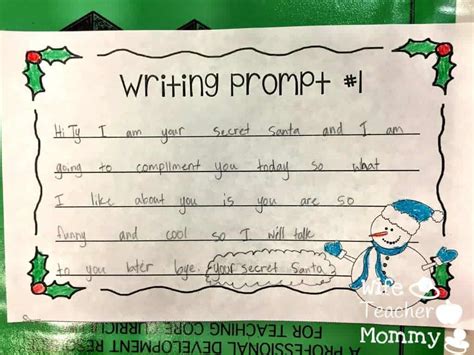 Writing Prompt #1
Hi Ty I am your secret Santa and I am
going to compliment you today so what
I like about you is you are so
funny and cool so I will talk
to you later bye. Your secret Santa
Wife
Teacher
Mommy
A PROFESSIONAL DEVELOPMENT RESO
FOR TEACHING CORE CURRICU